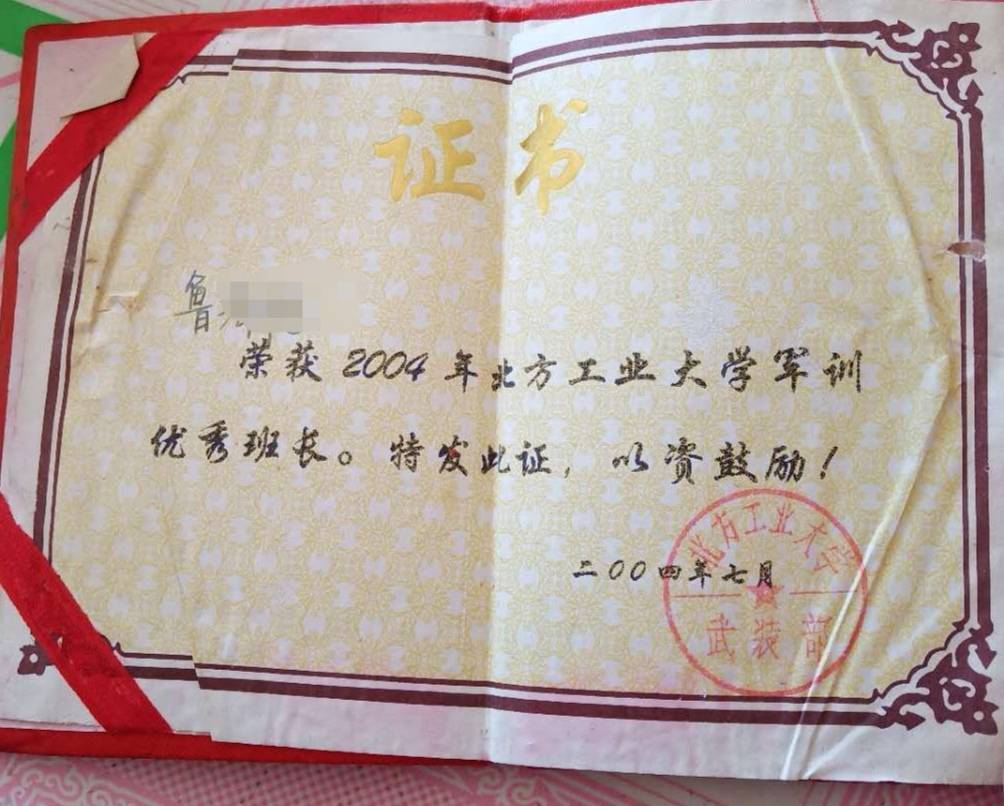 证书
鲁
荣获2004年北方工业大学军训
优秀班长。特发此证，以资鼓励！
二00四年七月
北方工业大学
武装部